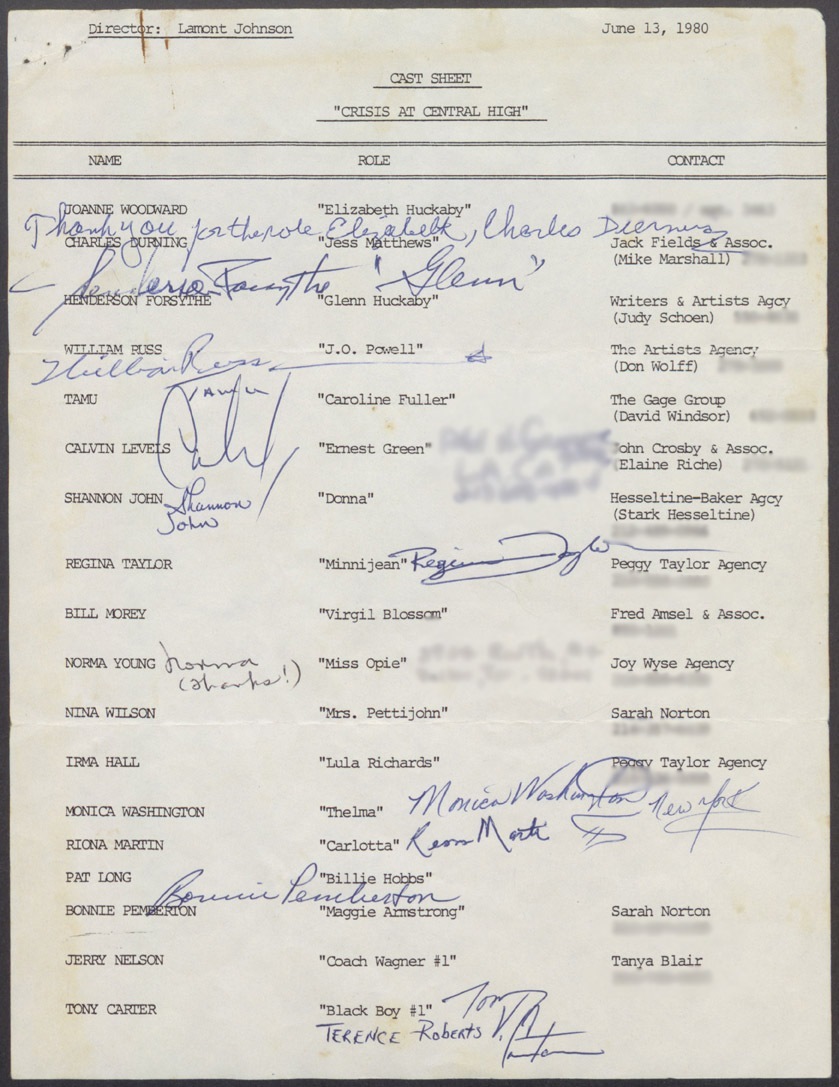 Director: Lamont Johnson June 13, 1980
CAST SHEET
"CRISIS AT CENTRAL HIGH"
NAME ROLE CONTACT
JOANNE WOODWARD "Elizabeth Huckaby"
Thank you for the role Elizabeth, Charles Durning
CHARLES DURNING "Jess Matthews" Jack Fields & Assoc.
(Mike Marshall)
Henderson Forsythe "Glenn"
HENDERSON FORSYTHE "Glenn Huckaby" Writers & Artists Agcy
(Judy Schoen)
WILLIAM RUSS "J.O. Powell" The Artists Agency
William Russ (Don Wolff)
TAMU "Caroline Fuller" The Gage Group
Tamu (David Windsor)
CALVIN LEVELS "Ernest Green" John Crosby & Assoc.
(Elaine Riche)
SHANNON JOHN "Donna" Hesseltine-Baker Agcy
Shannon John (Stark Hesseltine)
REGINA TAYLOR "Minnijean" Regina Taylor Peggy Taylor Agency
BILL MOREY "Virgil Blossom" Fred Amsel & Assoc.
NORMA YOUNG Norma "Miss Opie" Joy Wyse Agency
(thanks!)
NINA WILSON "Mrs. Pettijohn" Sarah Norton
IRMA HALL "Lula Richards" Peggy Taylor Agency
MONICA WASHINGTON "Thelma" Monica Washington New York
RIONA MARTIN "Carlotta" Riona Martin
PAT LONG "Billie Hobbs"
Bonnie Pemberton
BONNIE PEMBERTON "Maggie Armstrong" Sarah Norton
JERRY NELSON "Coach Wagner #1" Tanya Blair
TONY CARTER "Black Boy #1"
TERENCE Roberts